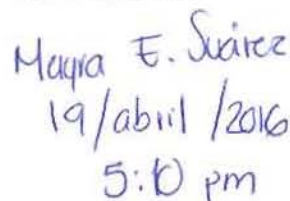 Mayra E. Suárez
19/abril/2016
5:10 pm